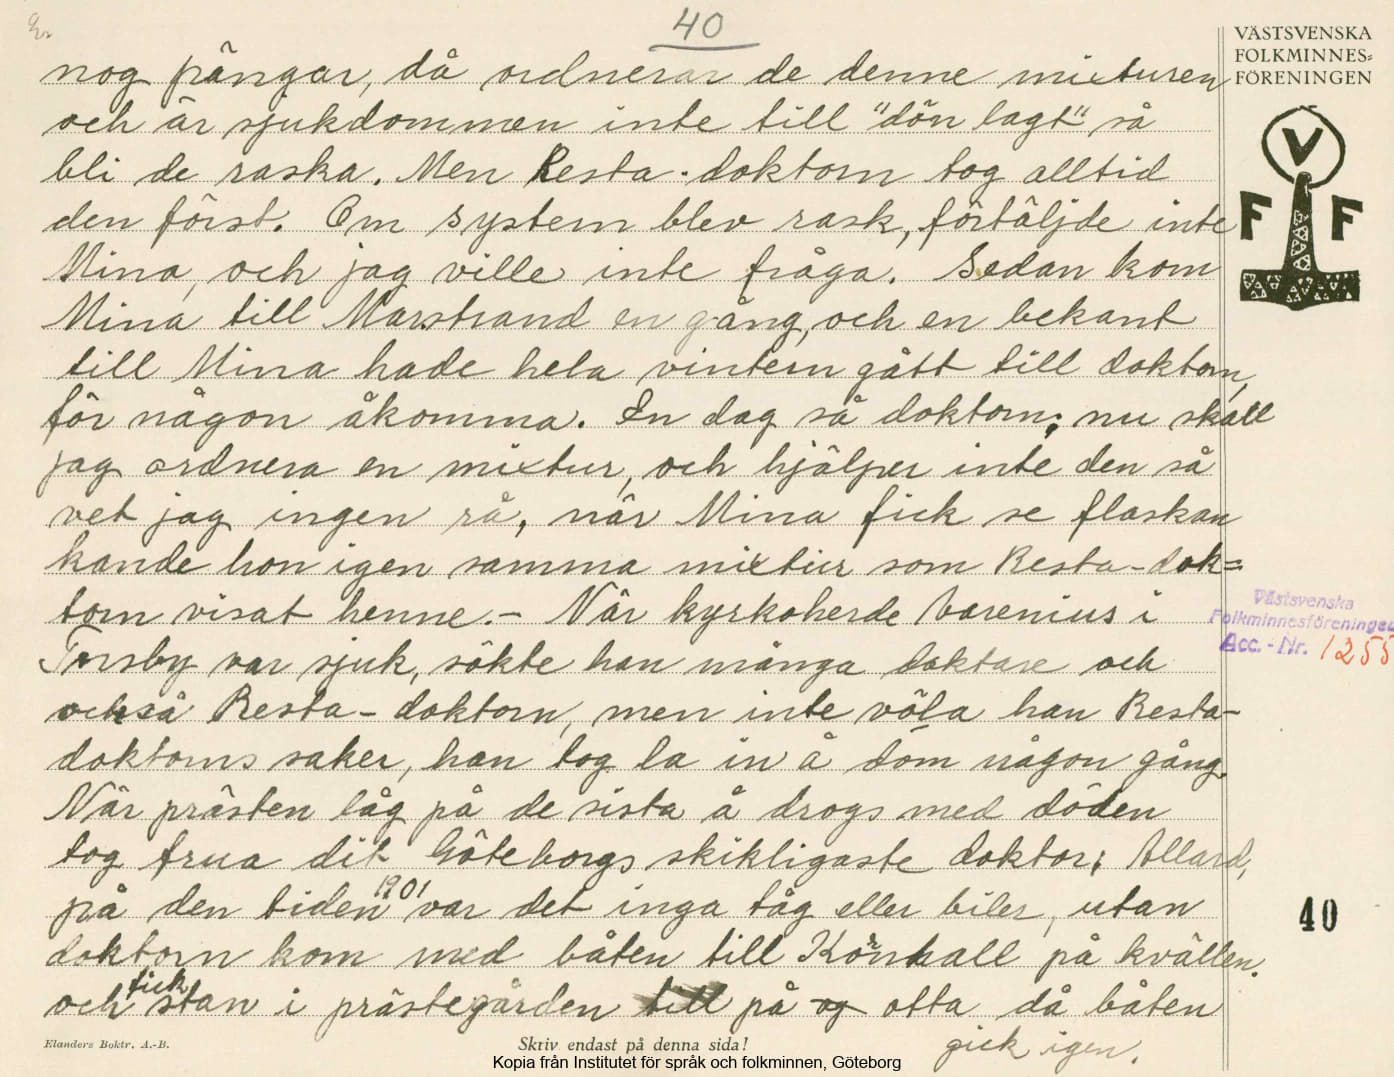 40
VÄSTSVENSKA
FOLKMINNES-
FÖRENINGEN
V
F F
nog pängar, då ordnerar de denne mixturen
och är sjukdommen inte till "dön lagt" så
bli de raska. Men Resta-doktorn tog alltid
den först. Om systern blev rask, förtäljde inte
Mina, och jag ville inte fråga. Sedan kom
Mina till Marstrand en gång, och en bekant
till Mina hade hela vintern gått till doktorn,
för någon åkomma. En dag så doktorn; nu skall
jag ordnera en mixtur, och hjälper inte den så
vet jag ingen rå, när Mina fick se flaskan
kande hon igen samma mixtur som Resta-dok=
torn visat henne.- När kyrkoherde Varenius i
Torsby var sjuk, sökte han många doktare och
också Resta-doktorn, men inte völa han Resta-
doktorns saker, han tog la in å döm någon gång.
När prästen låg på de sista å drogs med döden
tog frua dit Göteborgs skikligaste doktor; Allard,
på den tiden 1901 var det inga tåg eller biler, utan
doktorn kom med båten till Kornhall på kvällen.
och fick stan i prästegården till på og otta då båten
gick igen.
Västsvenska
Folkminnesföreningen
Acc.-Nr. 1255
40
Elanders Boktr. A.-B.
Skriv endast på denna sida!
Kopia från Institutet för språk och folkminnen, Göteborg